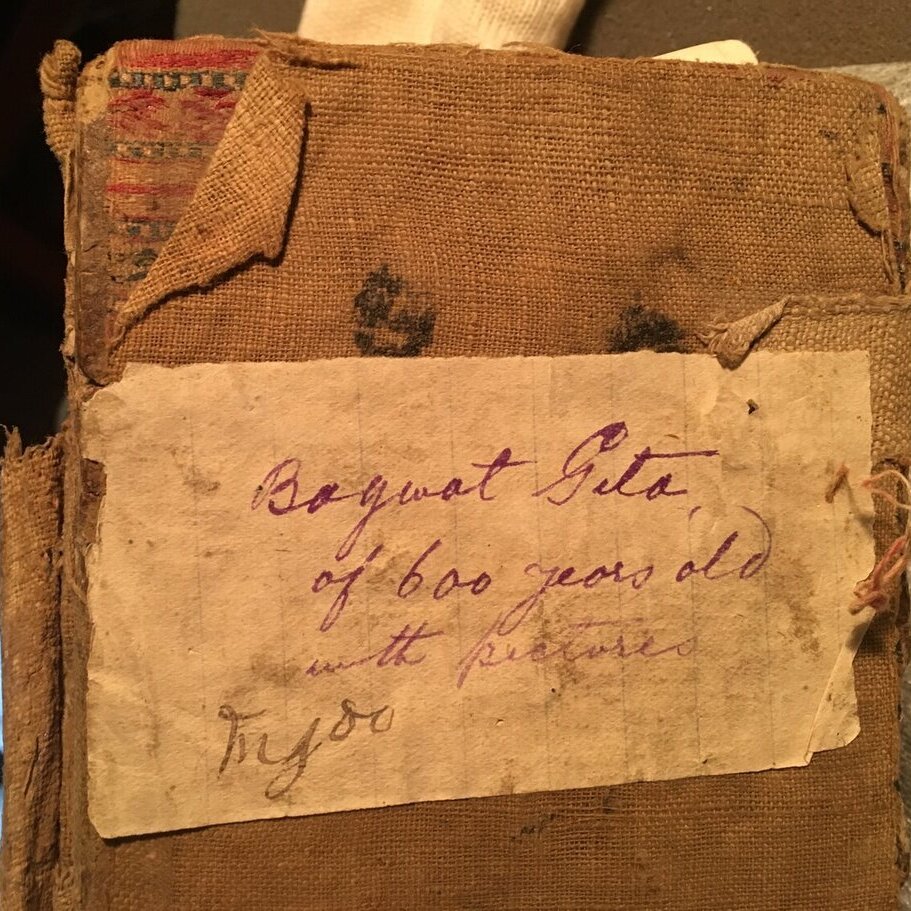 Bagwat Gita,
of 600 years old
with pictures